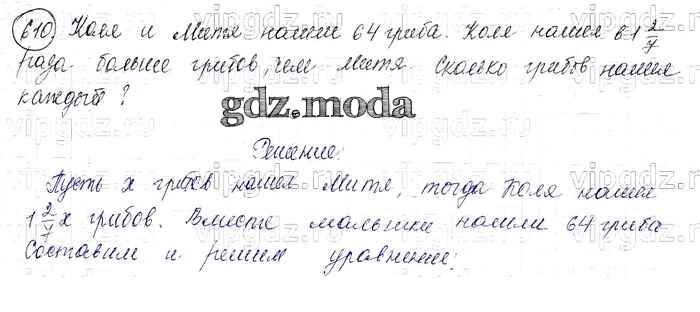 610 Коля и Митя нашли 64 гриба. Коля нашел в 1 2/7
раза больше грибов, чем Митя. Сколько грибов нашел
каждый?
gdz.moda
Решение:
Пусть x грибов нашел Митя, тогда Коля нашел
1 2/7 x грибов. Вместе мальчики нашли 64 гриба
Составим и решим уравнение: